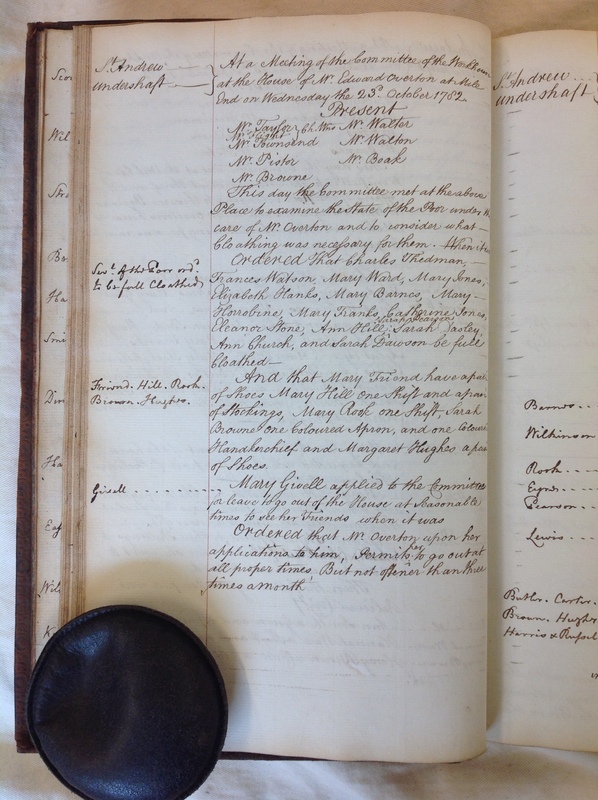 St. Andrew
undershaft
At a Meeting of the Committee of the Workhouse
at the House of Mr. Edward Overton at Mile
End on Wednesday the 23d. October 1782.
Present
Mr. Taylor
Ch. Wns
Mr. Walter
Mr. Townsend
Mr. Walton
Mr. Pistor
Mr. Boak
Mr. Browne
This day the Committee met at the above
Place to examine the State of the Poor under the
care of Mr. Overton and to consider what
Cloathing was necessary for them. When it was
Sevl. of the Poor ord.
to be full Cloathed
Ordered That Charles Thedman,
Frances Watson, Mary Ward, Mary Jones,
Elizabeth Hanks, Mary Barnes, Mary
Horrobine, Mary Franks, Catherine Jones,
Eleanor Stone, Ann Hill, Sarah Pearson Sarah Easley,
Ann Church, and Sarah Dawson be full
Cloathed
Friend. Hill. Rook.
Brown. Hughes.
And that Mary Friend have a pair
of Shoes Mary Hill One Shift and a pair
of Stockings, Mary Rook one Shift, Sarah
Browne One Coloured Apron, and one Coloured
Handkerchief and Margaret Hughes a pair
of Shoes.
Givell
Mary Givell applied to the Committee
for leave to go out of the House at Seasonable
times to see her Friends when it was
Ordered that Mr. Overton upon her
applications to him, Permit her to go out at
all proper times. But not oftener than three
times a month
St. Andrew
undershaft
Barnes
Wilkinson
Rook
Pearson
Lewis
Butler. Carter.
Brown. Hughes
Harris & Russel